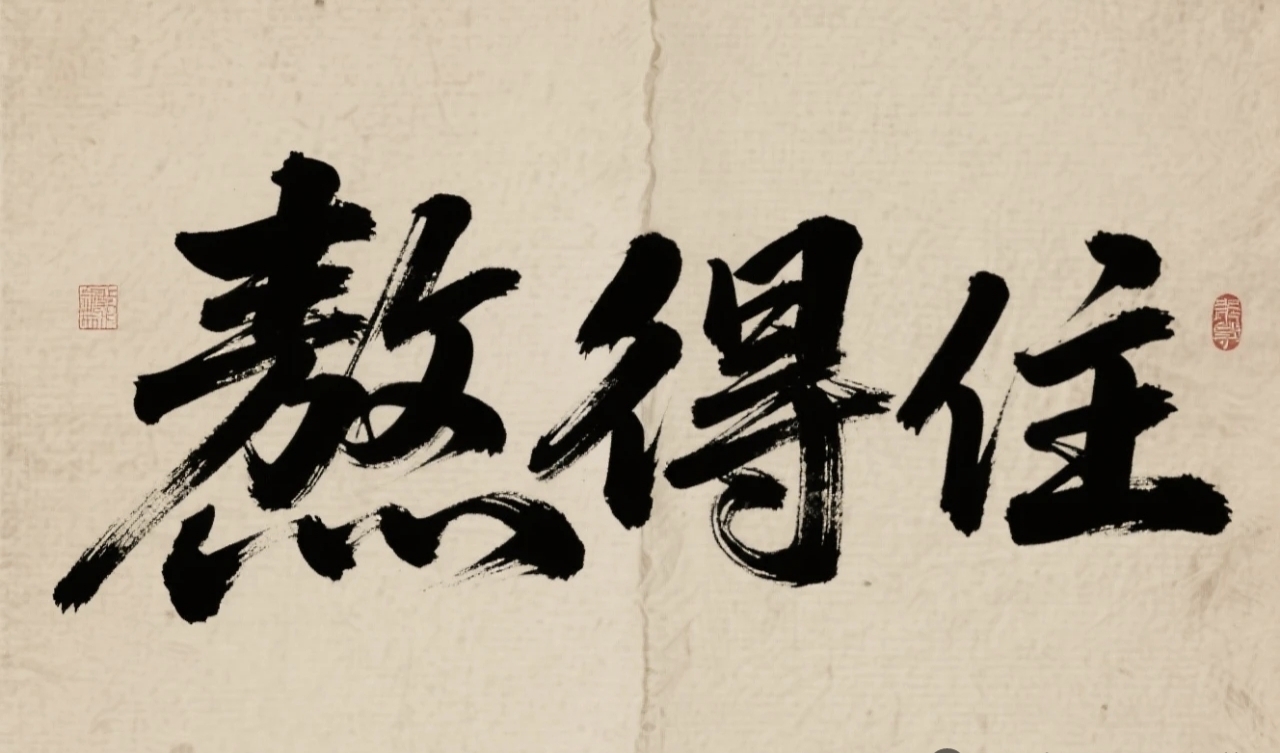 熬得住